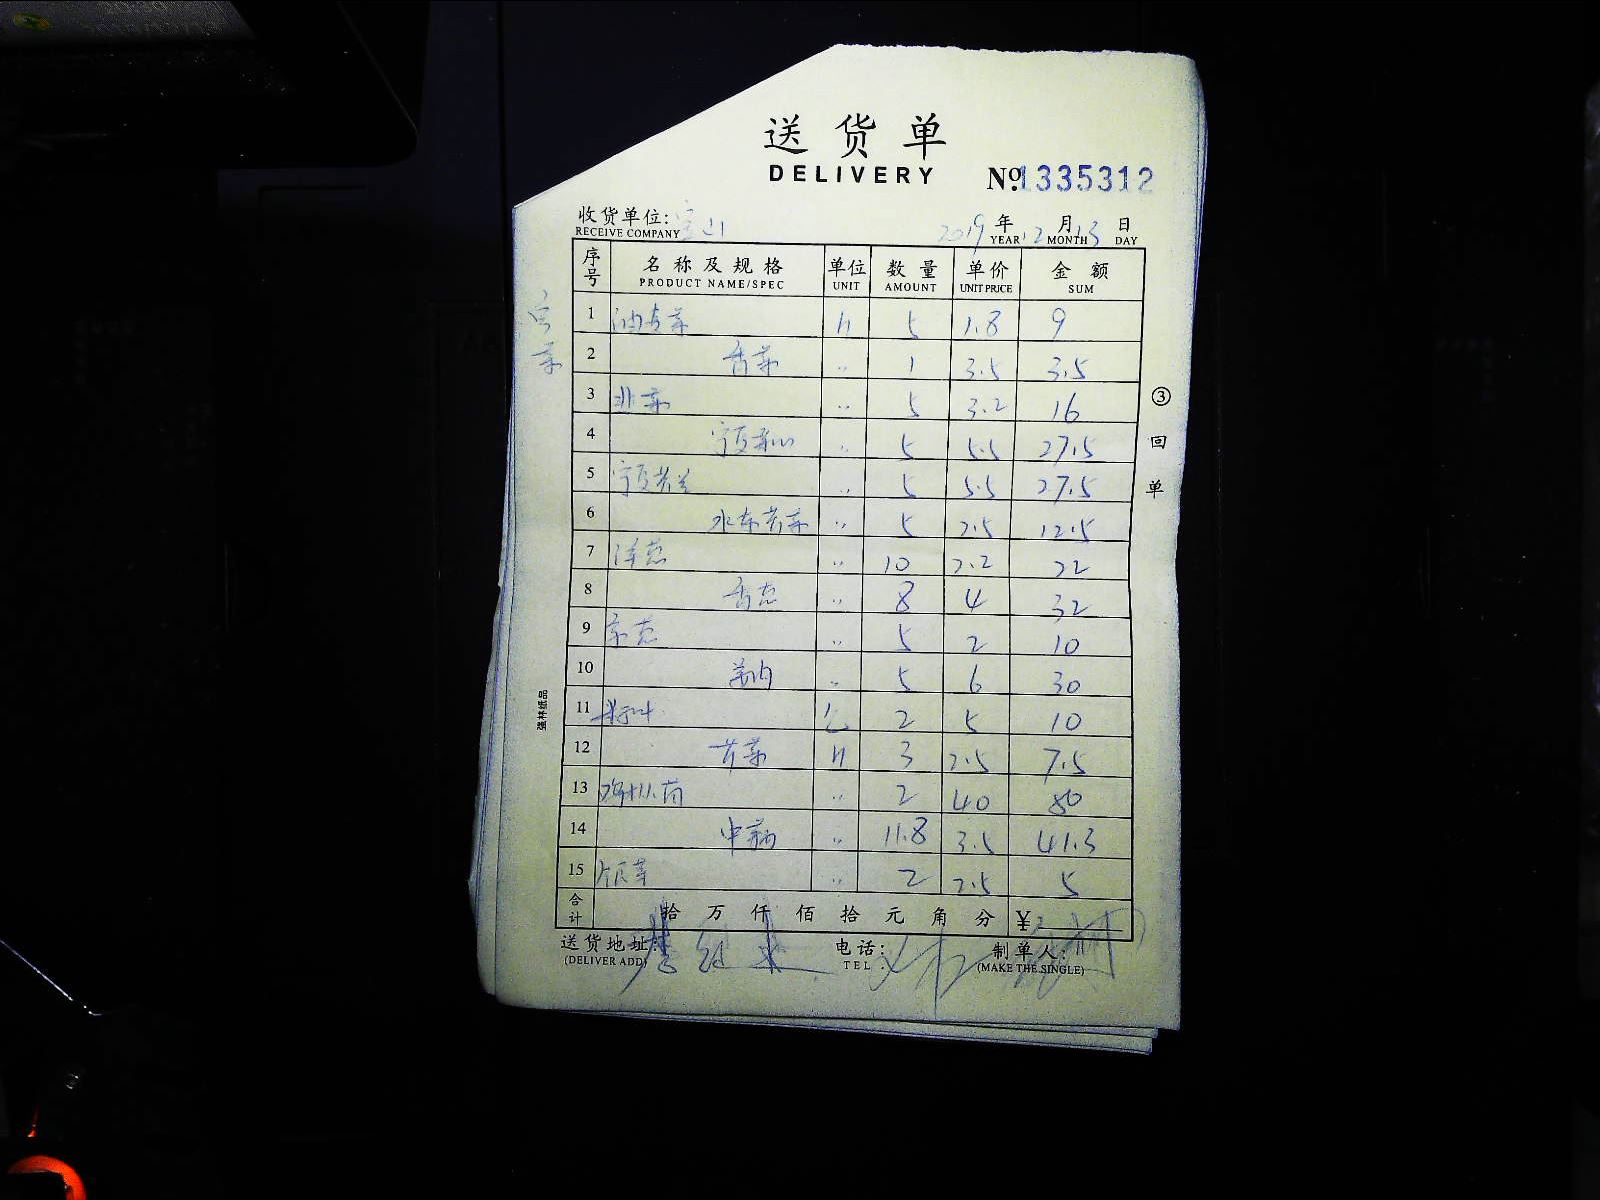 送货单
DELIVERY
№ 1335312
收货单位: 宝山 2019 年 12 月 13 日
RECEIVE COMPANY YEAR MONTH DAY
序号 名称及规格 单位 数量 单价 金额
PRODUCT NAME/SPEC UNIT AMOUNT UNIT PRICE SUM
1 油麦菜 斤 5 1.8 9
2 香菜 〃 1 3.5 3.5
3 韭菜 〃 5 3.2 16
4 宁夏菜心 〃 5 5.5 27.5
5 宁夏芥兰 〃 5 5.5 27.5
6 水东芥菜 〃 5 2.5 12.5
7 洋葱 〃 10 2.2 22
8 香葱 〃 8 4 32
9 京葱 〃 5 2 10
10 〃 5 6 30
11 2 5 10
12 芹菜 斤 3 2.5 7.5
13 〃 2 40 80
14 〃 11.8 3.5 41.3
15 银芽 〃 2 2.5 5
合计 拾 万 仟 佰 拾 元 角 分 ¥
送货地址: 电话: 制单人:
(DELIVER ADD) TEL: (MAKE THE SINGLE)
③回单
强林纸品